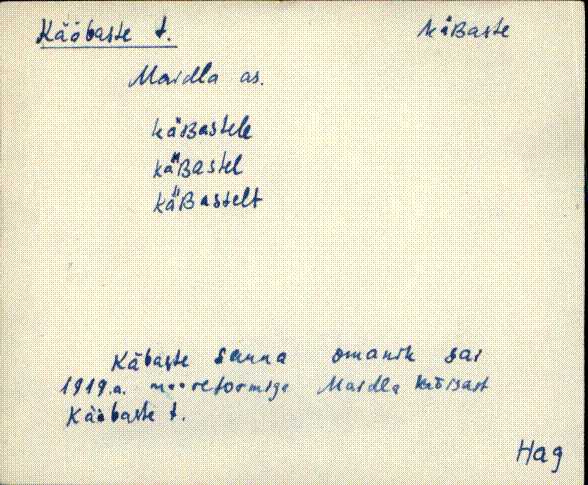 Kääbaste t. käʙaste
Maidla as.
käʙastele
käʙastel
käʙastelt
Käbaste sauna omanik sai
1919.a. maareformiga Maidla mõisast
Kääbaste t.
Hag